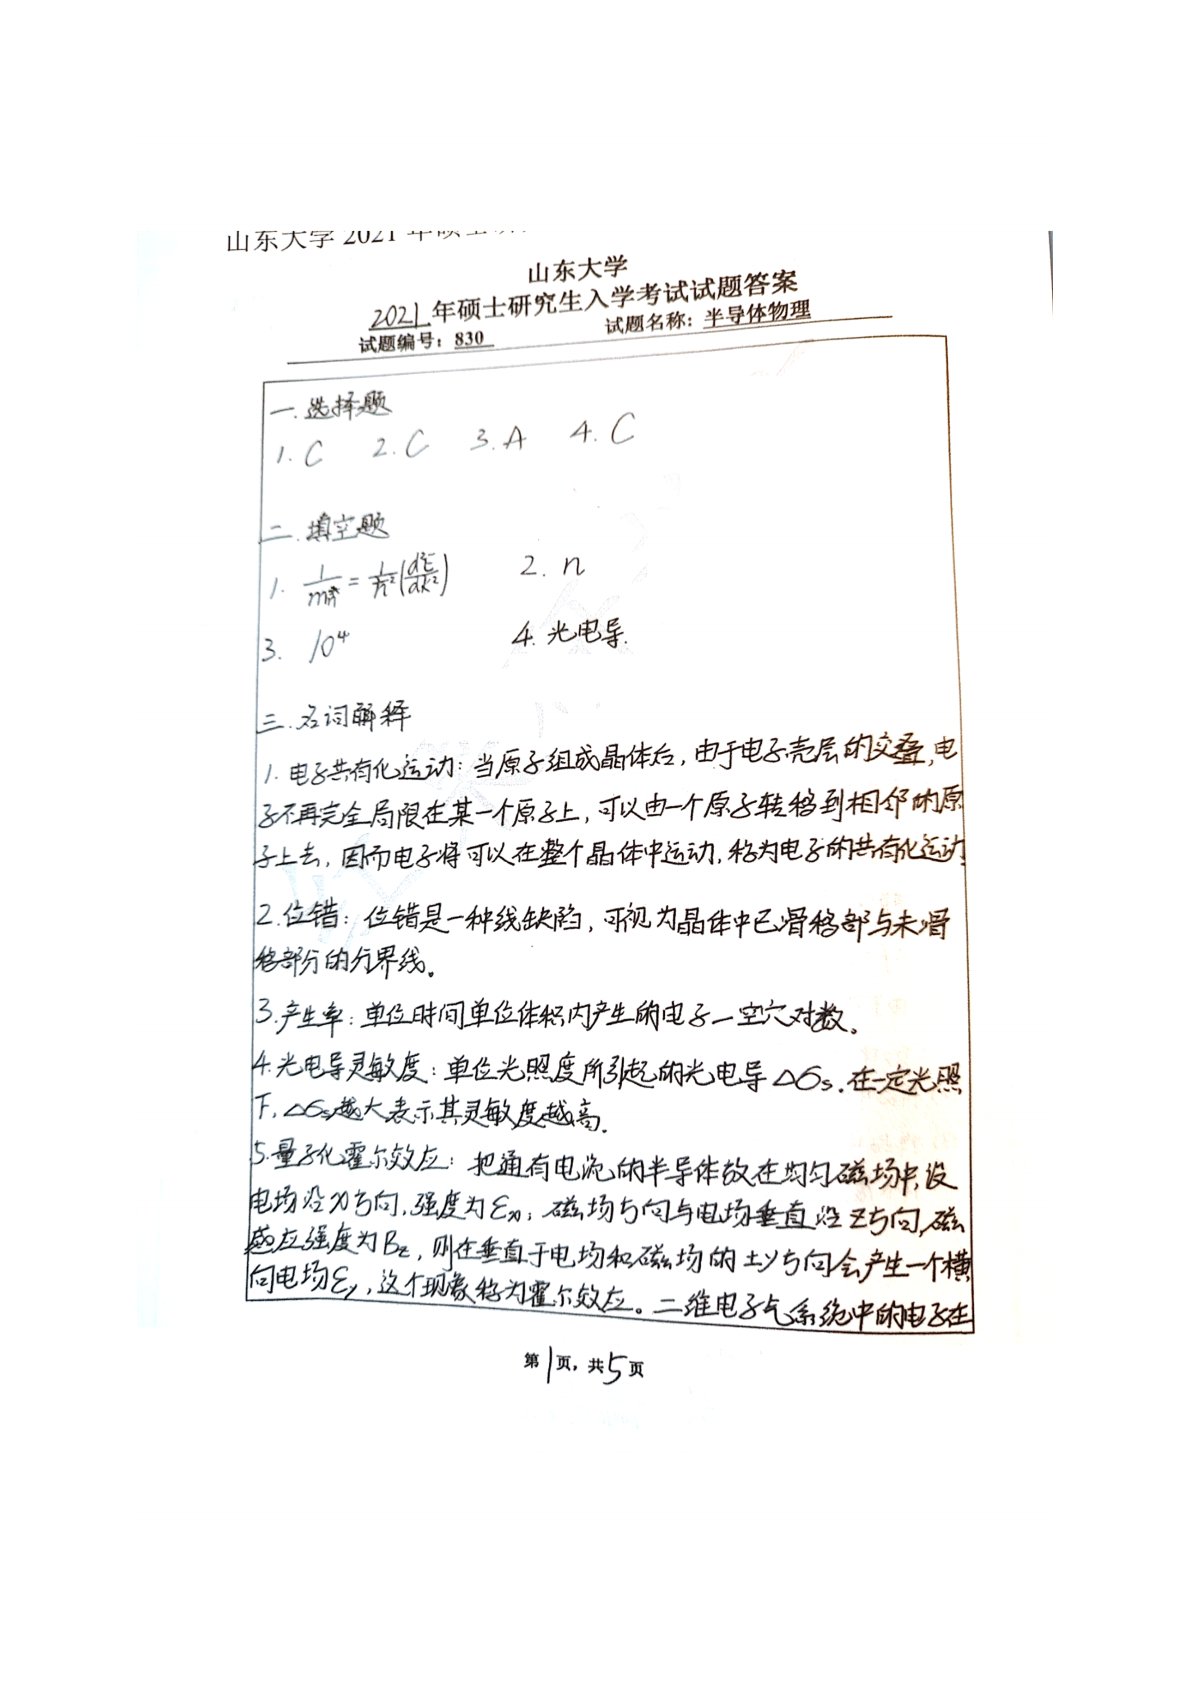 山东大学 2021 年硕士
山东大学
2021年硕士研究生入学考试试题答案
试题编号：830 试题名称：半导体物理
一.选择题
1. C 2. C 3. A 4. C
二.填空题
1. 1/m*n = 1/ħ²(d²E/dk²) 2. n
3. 10⁴ 4. 光电导.
三.名词解释
1. 电子共有化运动：当原子组成晶体后，由于电子壳层的交叠，电
子不再完全局限在某一个原子上，可以由一个原子转移到相邻的原
子上去，因而电子将可以在整个晶体中运动，称为电子的共有化运动
2.位错：位错是一种线缺陷，可视为晶体中已滑移部与未滑
移部分的分界线。
3.产生率：单位时间单位体积内产生的电子—空穴对数。
4.光电导灵敏度：单位光照度所引起的光电导Δσs. 在一定光照
下，Δσs越大表示其灵敏度越高.
5.量子化霍尔效应：把通有电流的半导体放在均匀磁场中，设
电场沿x方向，强度为Ex；磁场方向与电场垂直沿Z方向，磁
感应强度为Bz，则在垂直于电场和磁场的±y方向会产生一个横
向电场Ey，这个现象称为霍尔效应。二维电子气系统中的电子在
第1页，共5页